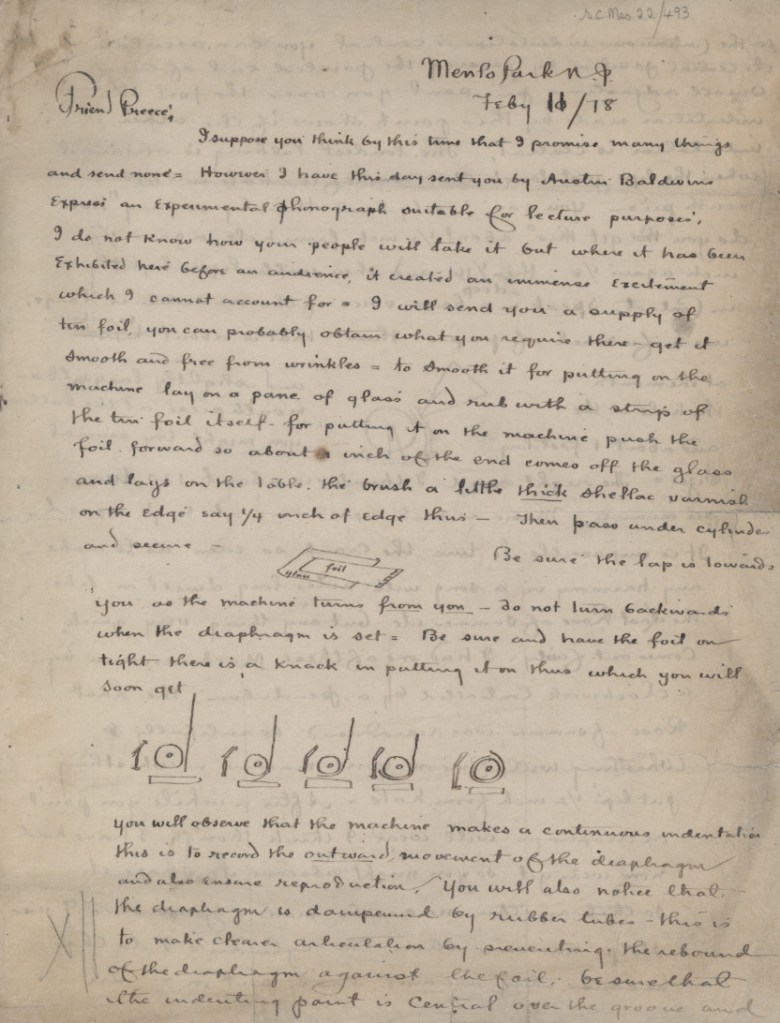 S.C. Mss. 22/493
Menlo Park N J
Feby 11/18
Friend Preece,
I suppose you think by this time that I promise many things
and send none = However I have this day sent you by Austin Baldwins
Express an Experimental phonograph suitable for lecture purposes,
I do not know how your people will take it but where it has been
Exhibited here before an audience, it created an immense Excitement
which I cannot account for = I will send you a supply of
tin foil, you can probably obtain what you require there - get it
smooth and free from wrinkles = to smooth it for putting on the
machine lay on a pane of glass and rub with a strip of
the tin foil itself - for putting it on the machine push the
foil forward so about inch of the end comes off the glass
and lays on the table. the brush a little thick shellac varnish
on the Edge say 1/4 inch of Edge thus — Then pass under cylinder
and secure -
foil
glass
Be sure the lap is towards
you as the machine turns from you - do not turn backwards
when the diaphragm is set = Be sure and have the foil on
tight there is a knack in putting it on thus which you will
soon get
you will observe that the machine makes a continuous indentation
this is to record the outward movement of the diaphragm
and also Ensure reproduction. You will also notice that
the diaphragm is dampened by rubber tubes - this is
to make clearer articulation by preventing the rebound
of the diaphragm against the foil. be sure that
the indenting point is central over the groove and